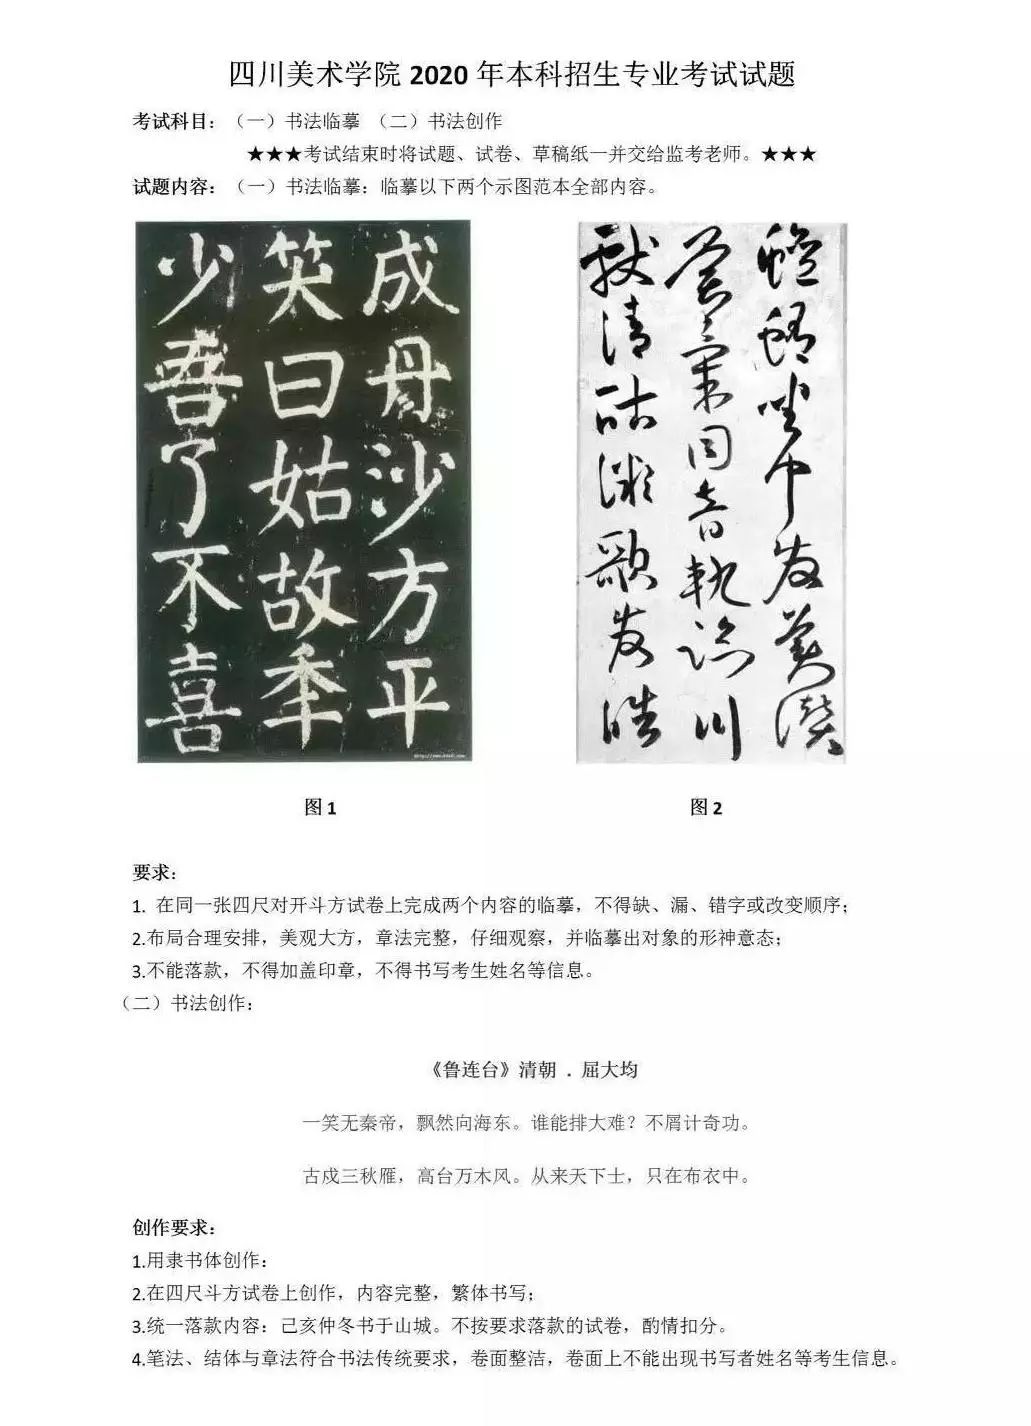 四川美术学院 2020 年本科招生专业考试试题
考试科目：（一）书法临摹 （二）书法创作
★★★考试结束时将试题、试卷、草稿纸一并交给监考老师。★★★
试题内容：（一）书法临摹：临摹以下两个示图范本全部内容。
成丹沙方平
笑曰姑故秊
少吾了不喜
图 1
图 2
要求：
1. 在同一张四尺对开斗方试卷上完成两个内容的临摹，不得缺、漏、错字或改变顺序；
2.布局合理安排，美观大方，章法完整，仔细观察，并临摹出对象的形神意态；
3.不能落款，不得加盖印章，不得书写考生姓名等信息。
（二）书法创作：
《鲁连台》清朝 . 屈大均
一笑无秦帝，飘然向海东。谁能排大难？不屑计奇功。
古戍三秋雁，高台万木风。从来天下士，只在布衣中。
创作要求：
1.用隶书体创作：
2.在四尺斗方试卷上创作，内容完整，繁体书写；
3.统一落款内容：己亥仲冬书于山城。不按要求落款的试卷，酌情扣分。
4.笔法、结体与章法符合书法传统要求，卷面整洁，卷面上不能出现书写者姓名等考生信息。